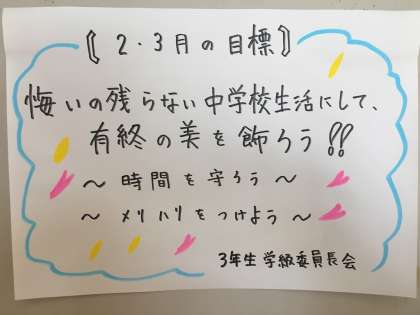 〘2・3月の目標〙
悔いの残らない中学校生活にして、
有終の美を飾ろう!!
～時間を守ろう～
～メリハリをつけよう～
3年生学級委員長会